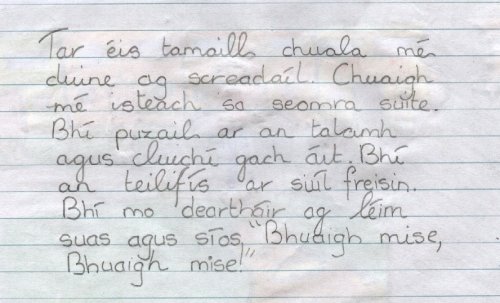 Tar éis tamaill chuala mé
duine ag screadaíl. Chuaigh
mé isteach sa seomra suite.
Bhí puzail ar an talamh
agus cluichí gach áit. Bhí
an teilifís ar siúl freisin.
Bhí mo dearthair ag léim
suas agus síos, "Bhuaigh mise,
Bhuaigh mise!"